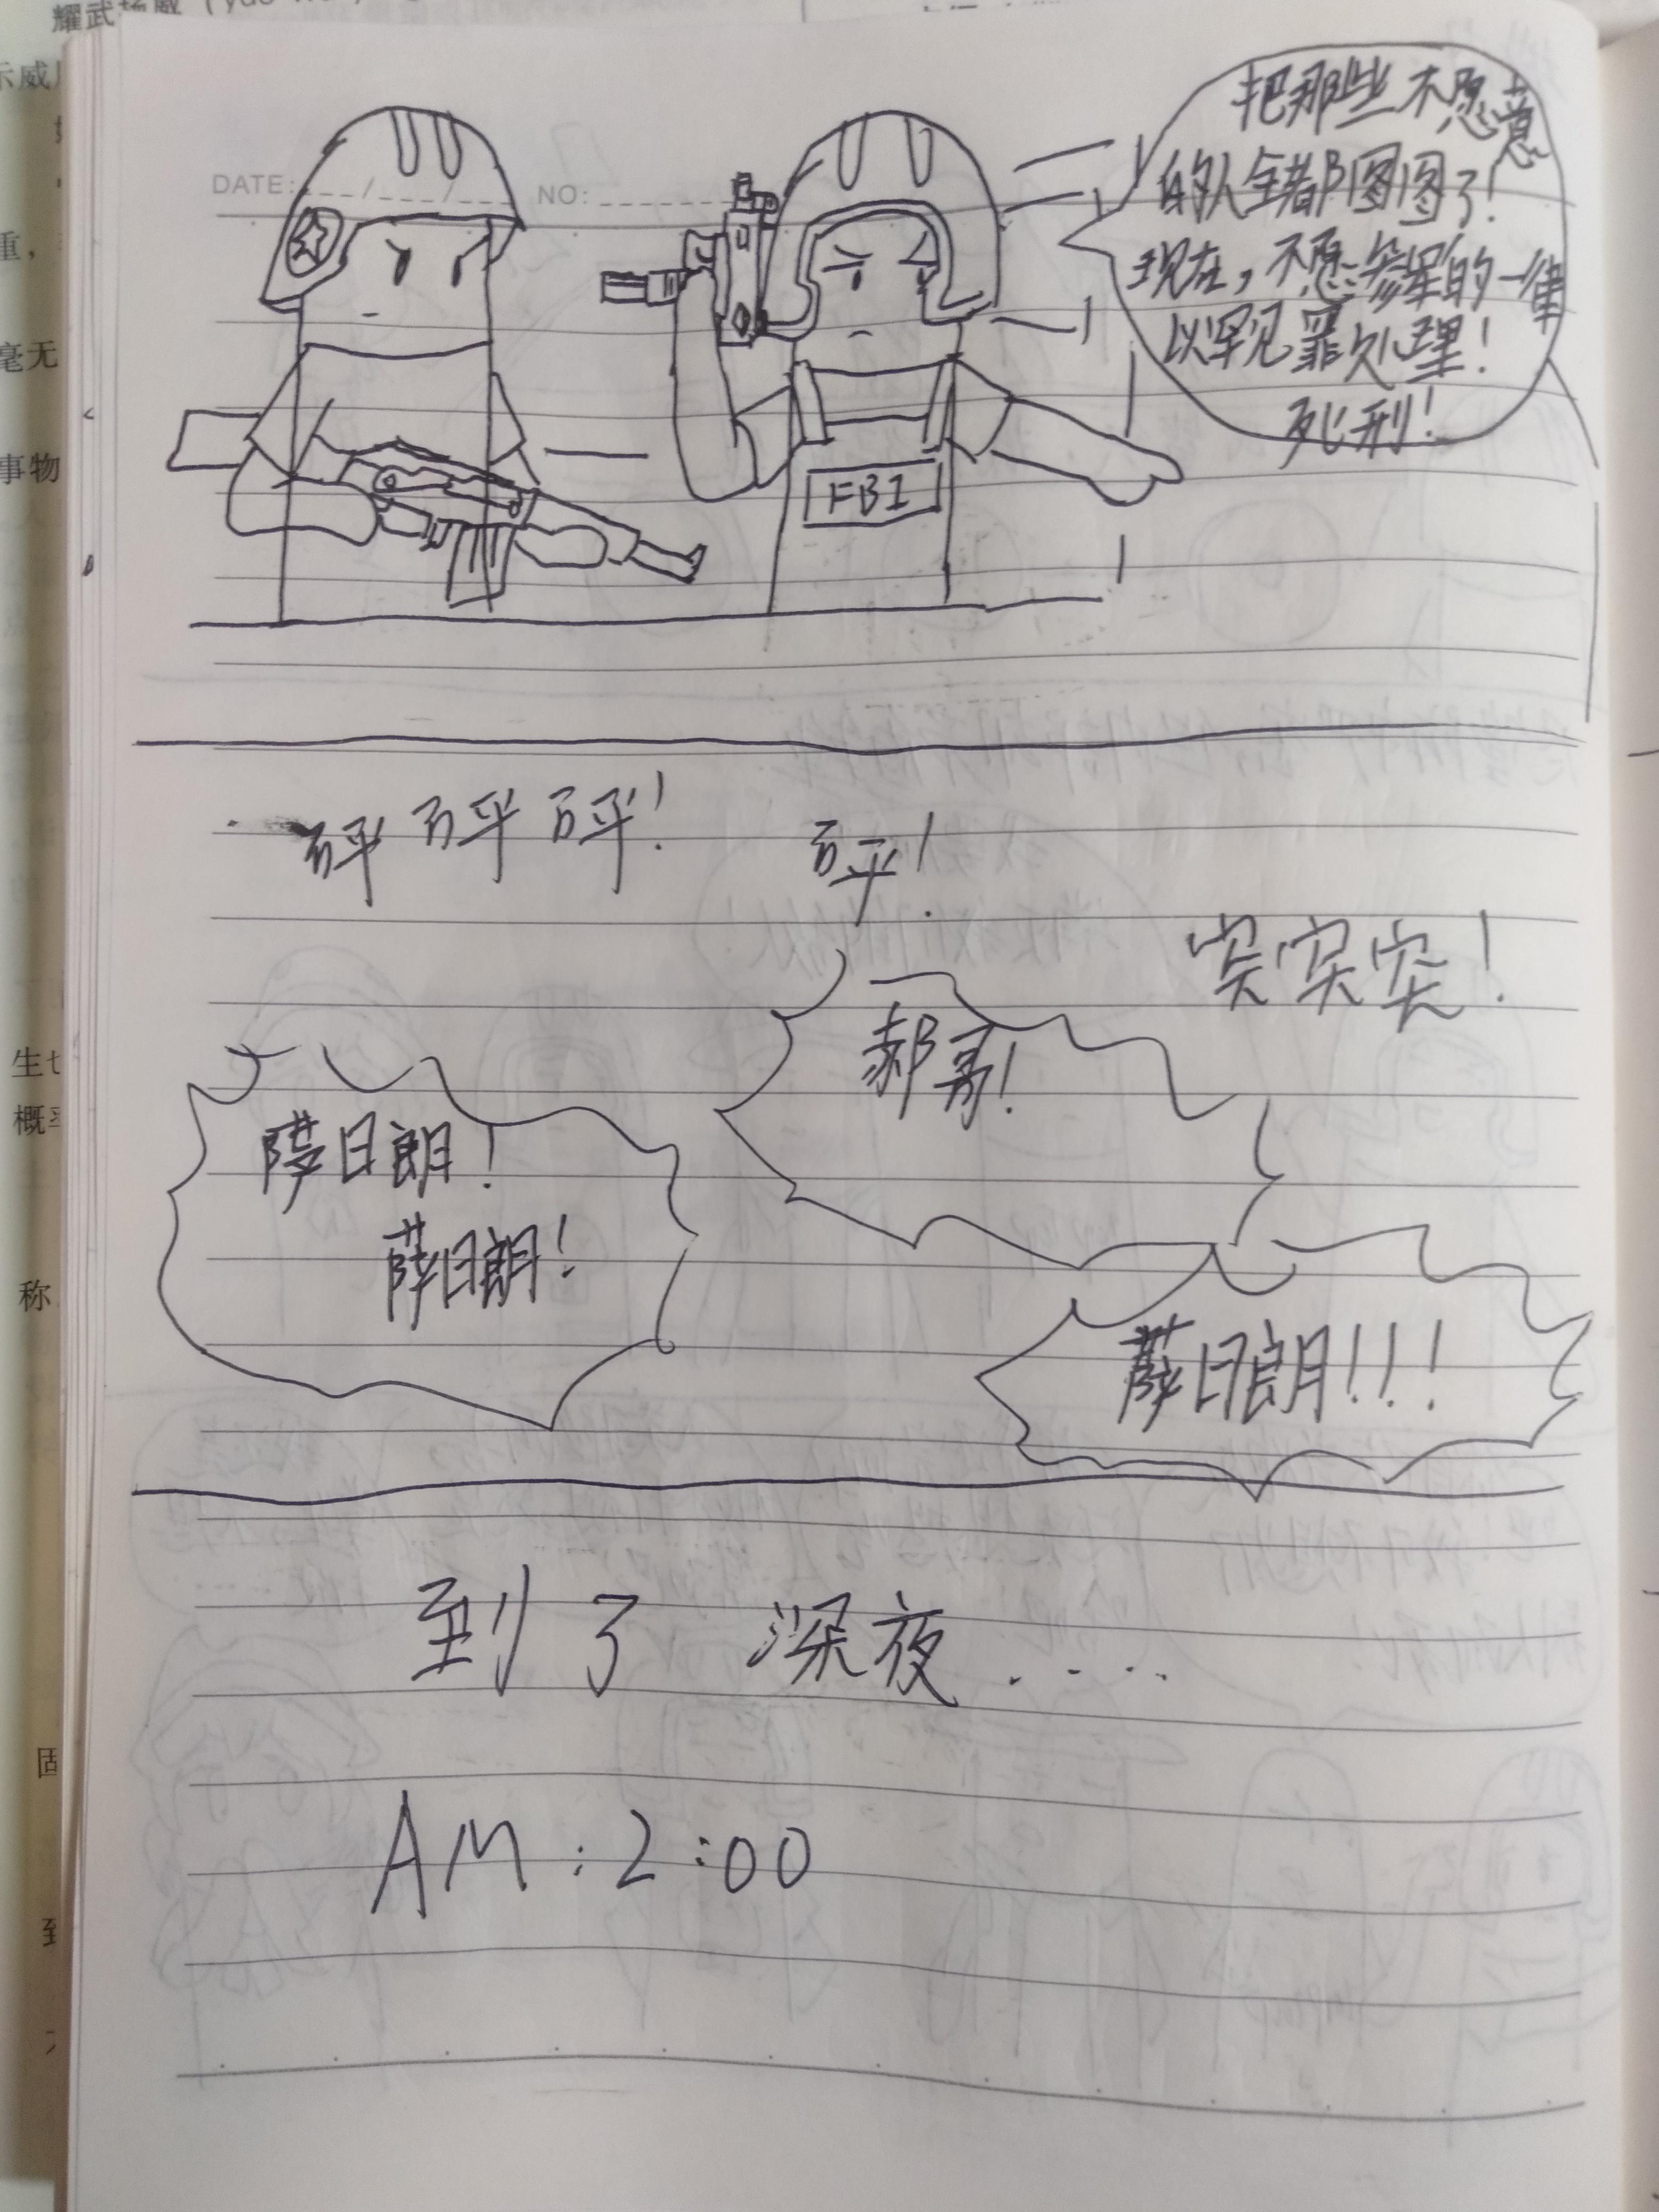 耀武扬威（yào wǔ
示威
重，
毫无
事物
生
概率
称
固
到
DATE: ___/___/___ NO: ______
把那些不愿意
的人全都图图了!
现在,不愿参军的一律
以军见罪处理!
死刑!
FBI
砰砰砰! 砰!
突突突!
郝哥!
薩日朗!
薛日朗!
薩日朗!!!
到了 深夜....
AM:2:00